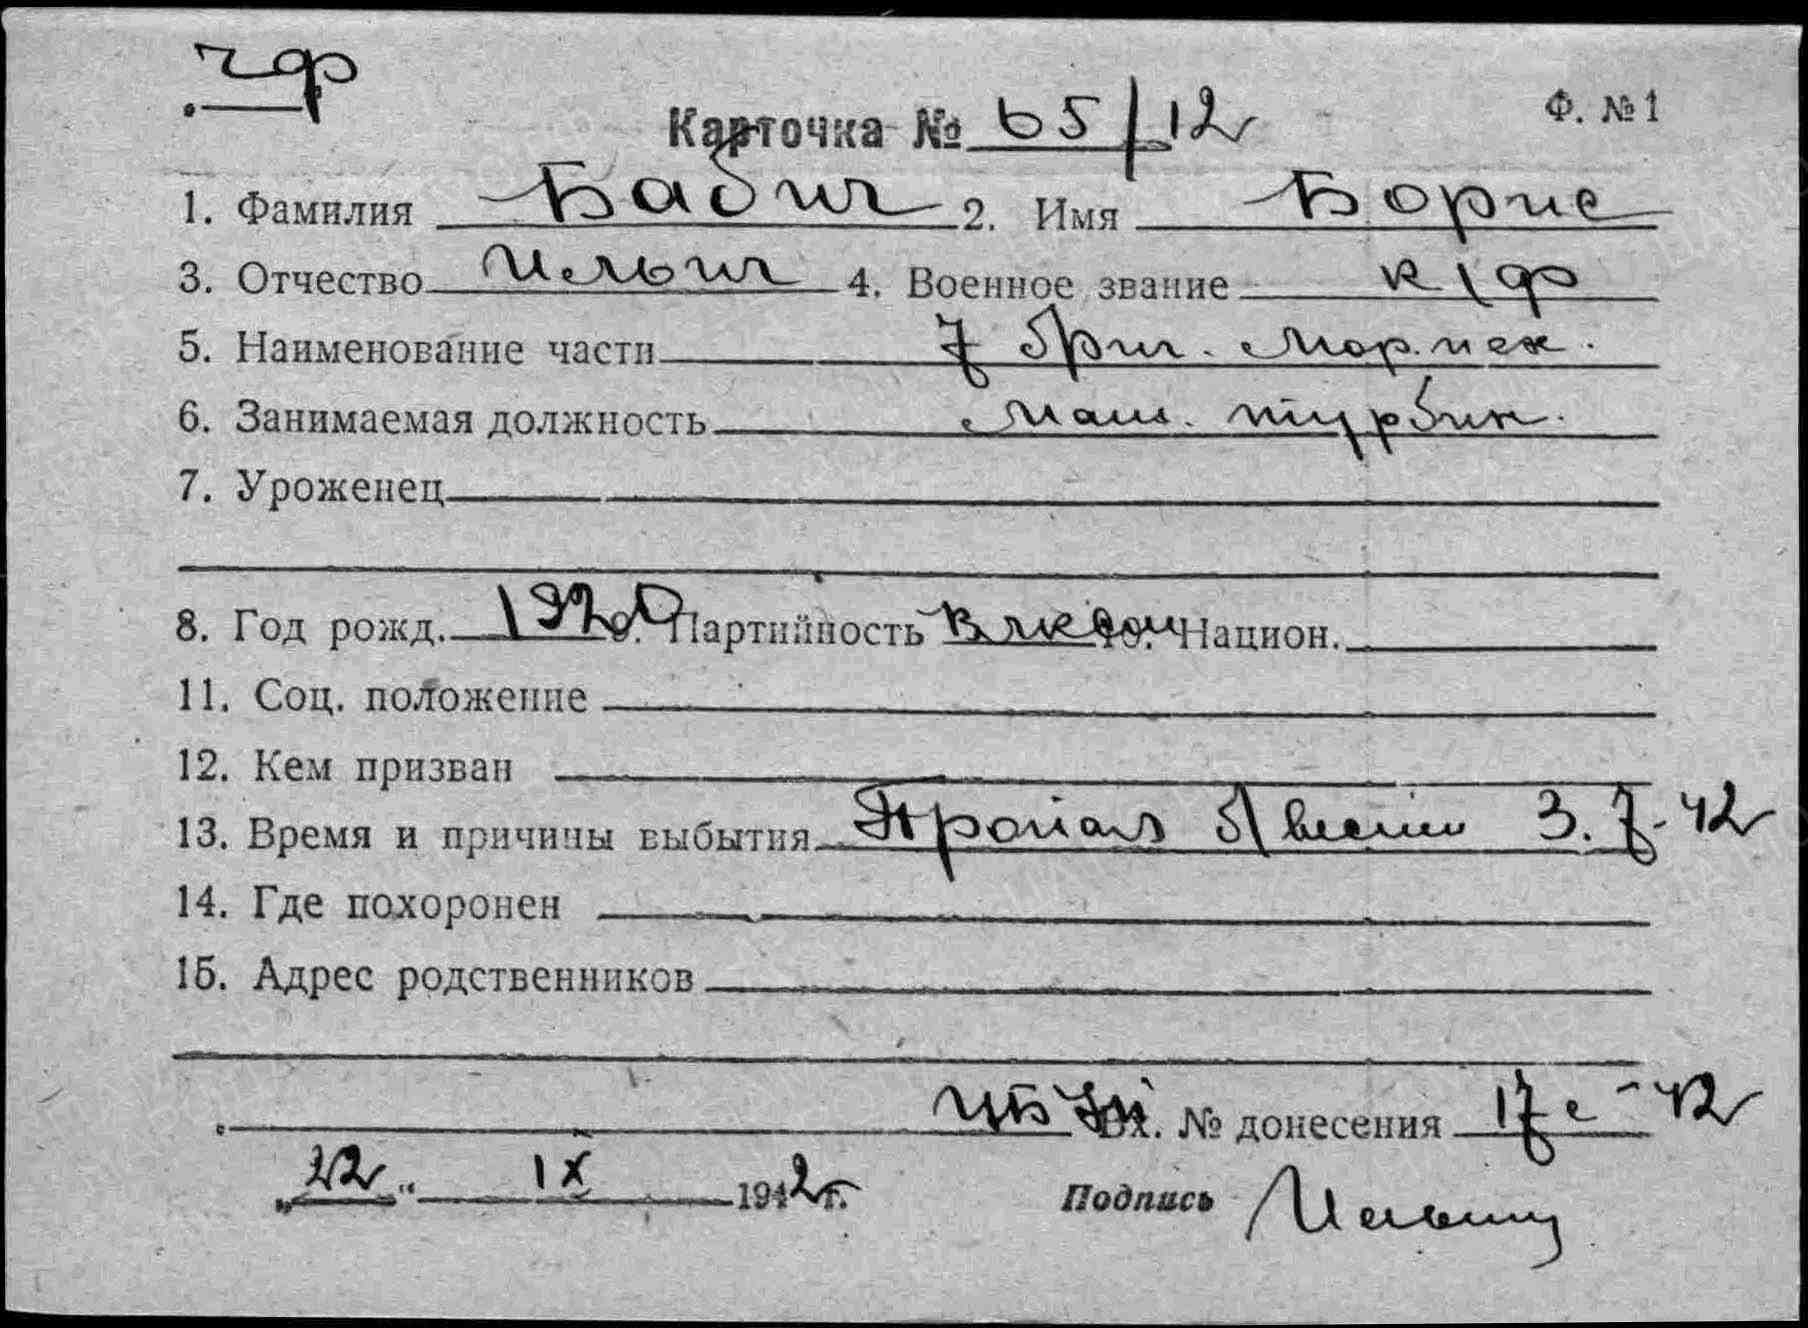 чф
Ф. № 1
Карточка № 65/12
1. Фамилия Бабич 2. Имя Борис
3. Отчество Ильич 4. Военное звание к/ф
5. Наименование части 7 бриг. мор. пех.
6. Занимаемая должность маш. турбин.
7. Уроженец
8. Год рожд. 1920 Партийность влксм Национ.
11. Соц. положение
12. Кем призван
13. Время и причины выбытия Пропал б/вести 3.7.42
14. Где похоронен
15. Адрес родственников
Вх. № донесения 17с - 42
„22“ IX 1942г. Подпись